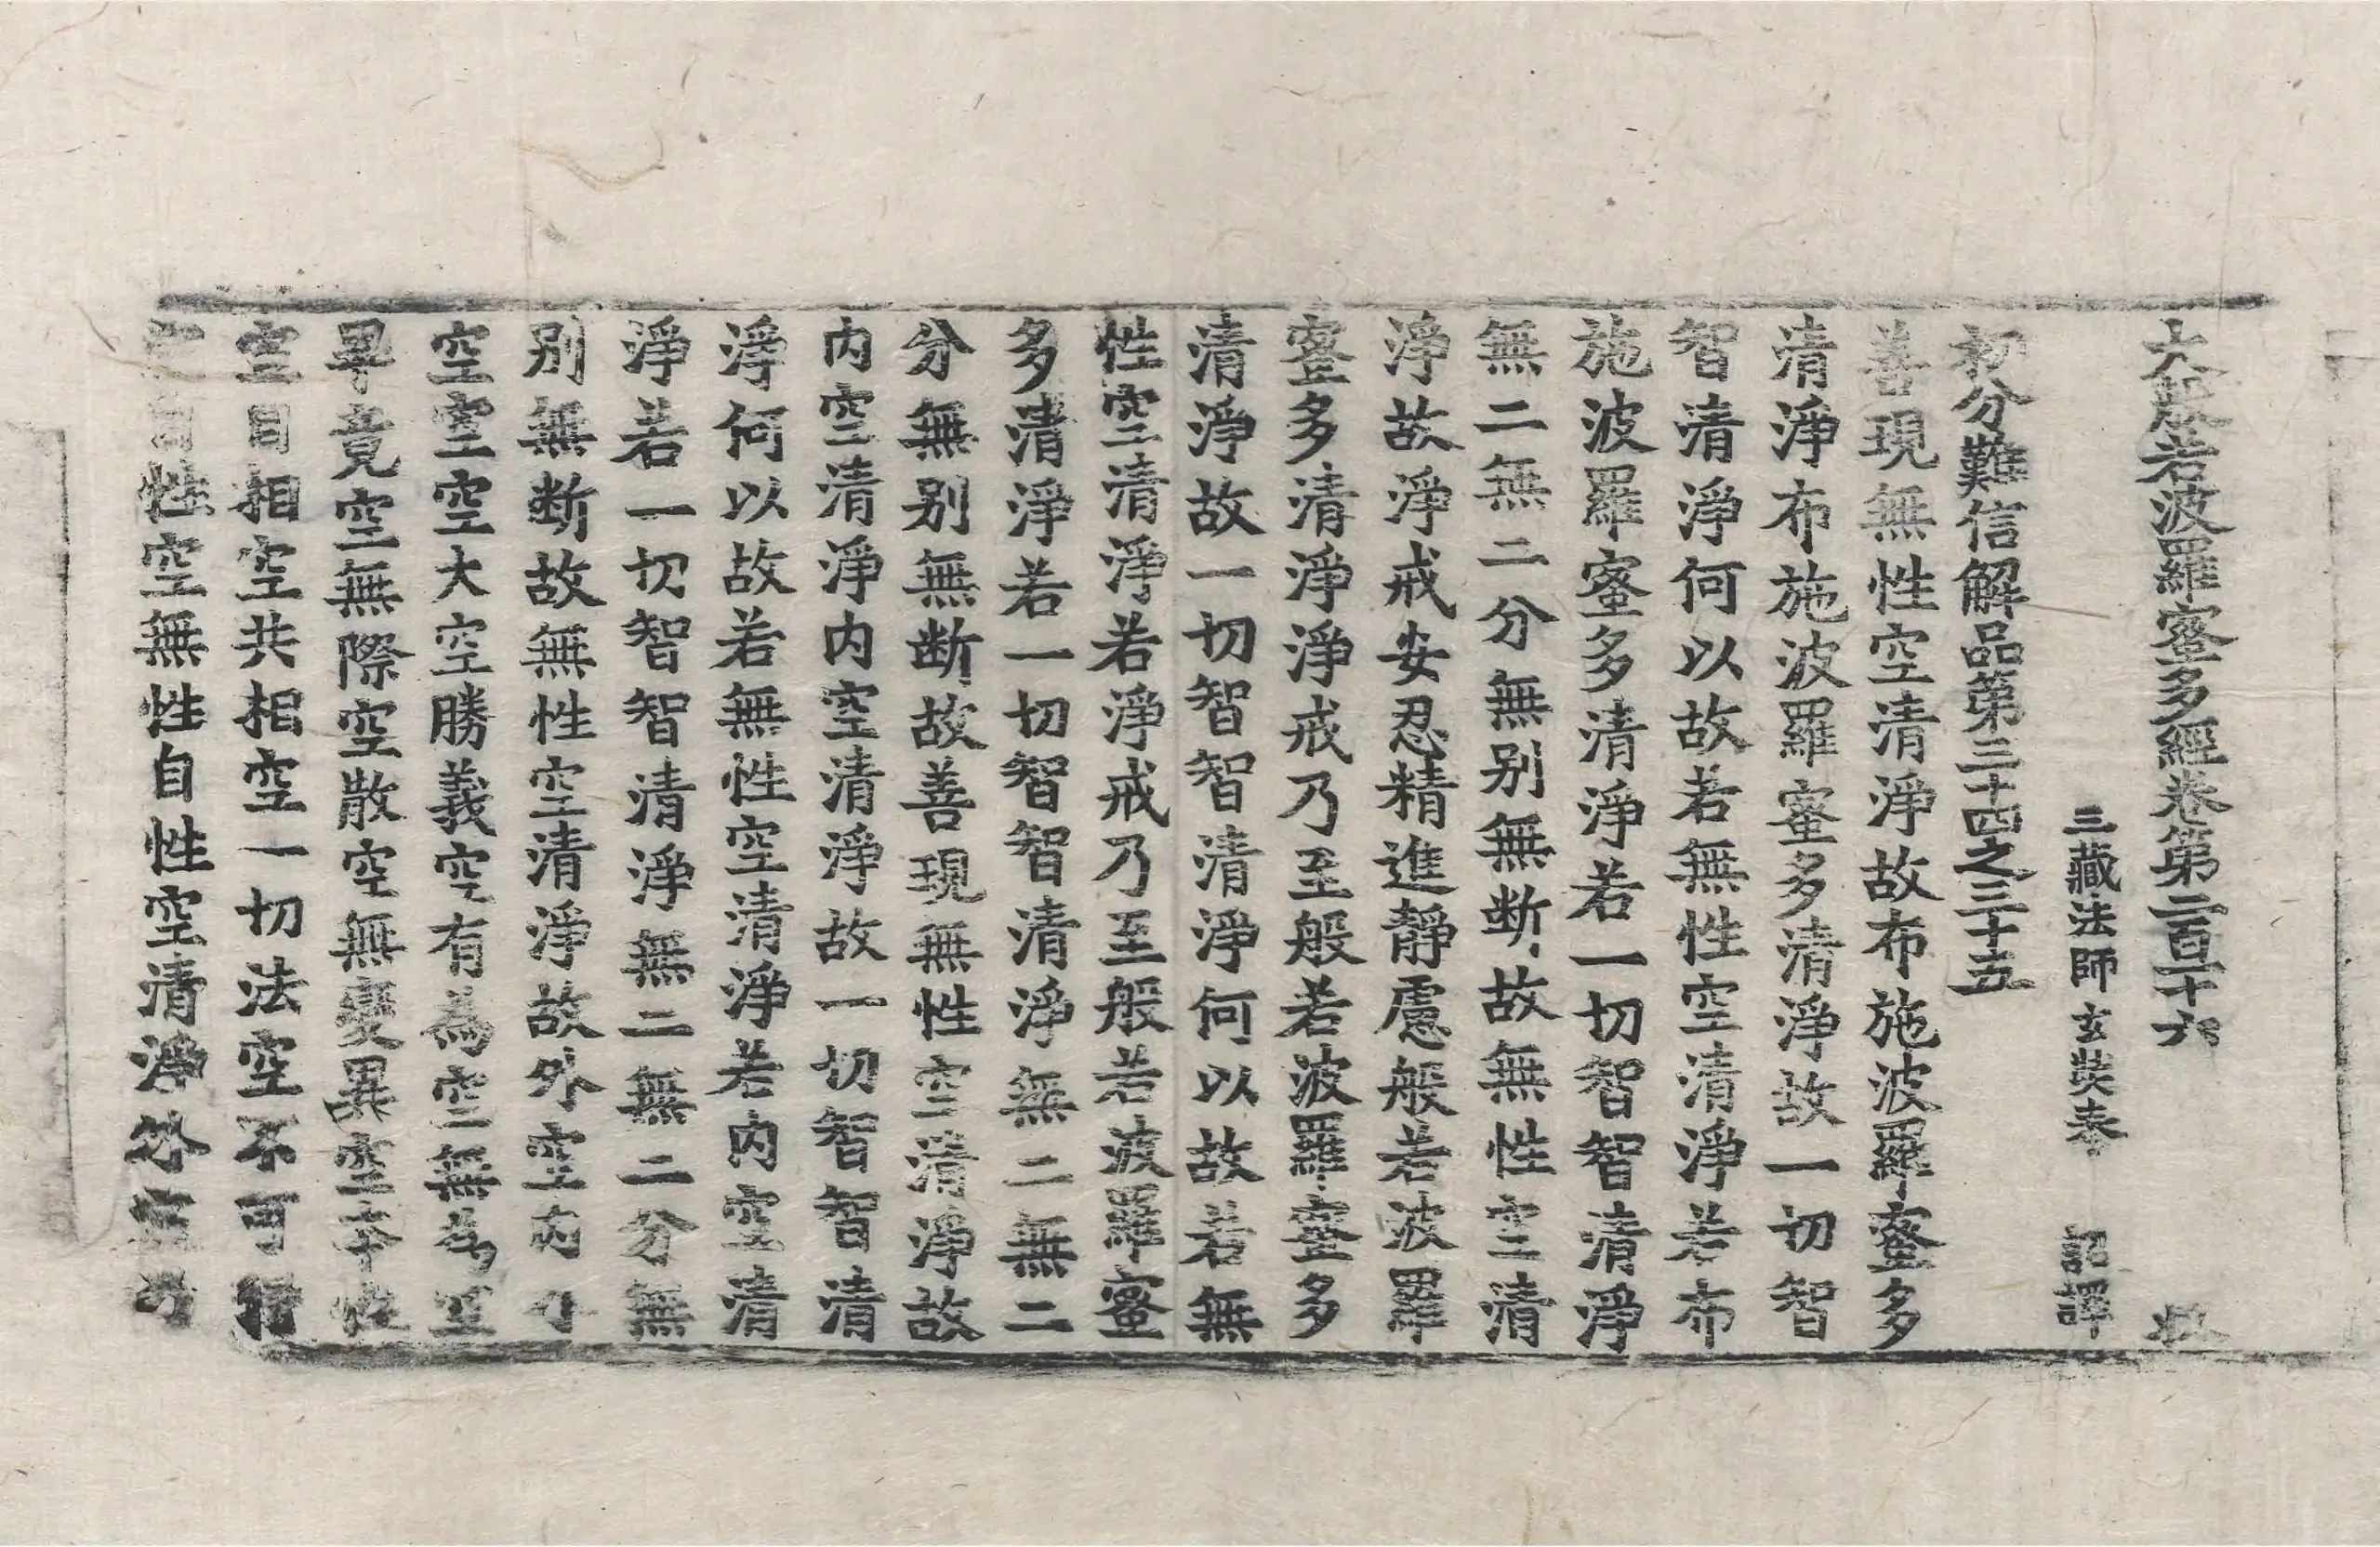 大般若波羅蜜多經卷第二百十六
三藏法師玄奘奉 詔譯
初分難信解品第三十四之三十五
善現無性空清淨故布施波羅蜜多
清淨布施波羅蜜多清淨故一切智
智清淨何以故若無性空清淨若布
施波羅蜜多清淨若一切智智清淨
無二無二分無別無断故無性空清
淨故淨戒安忍精進靜慮般若波羅
蜜多清淨淨戒乃至般若波羅蜜多
清淨故一切智智清淨何以故若無
性空清淨若淨戒乃至般若波羅蜜
多清淨若一切智智清淨無二無二
分無別無断故善現無性空清淨故
内空清淨内空清淨故一切智智清
淨何以故若無性空清淨若内空清
淨若一切智智清淨無二無二分無
別無断故無性空清淨故外空内外
空空空大空勝義空有為空無為空
畢竟空無際空散空無變異空本性
空自相空共相空一切法空不可得
空自性空無性自性空清淨外空乃